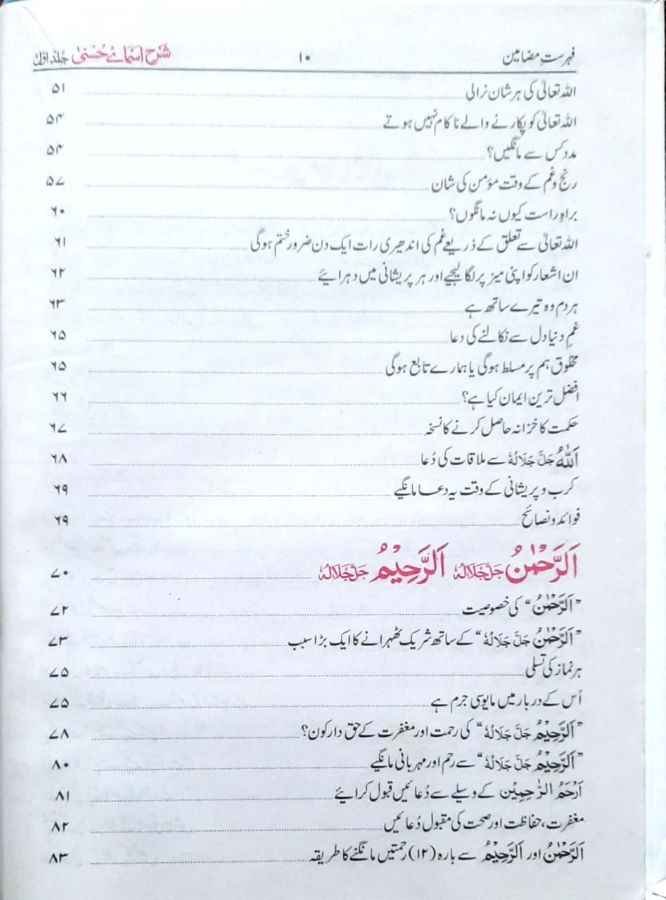 فہرست مضامین ۱۰ شرح اسمائے حسنیٰ جلد اول
اللہ تعالیٰ کی ہر شان نرالی ۵۱
اللہ تعالیٰ کو پکارنے والے ناکام نہیں ہوتے ۵۴
مدد کس سے مانگیں؟ ۵۴
رنج و غم کے وقت مؤمن کی شان ۵۷
براہِ راست کیوں نہ مانگوں؟ ۶۰
اللہ تعالیٰ سے تعلق کے ذریعے غم کی اندھیری رات ایک دن ضرور ختم ہوگی ۶۱
ان اشعار کو اپنی میز پر لگا لیجیے اور ہر پریشانی میں دہرائیے ۶۲
ہر دم وہ تیرے ساتھ ہے ۶۳
غمِ دنیا دل سے نکالنے کی دعا ۶۵
مخلوق ہم پر مسلط ہوگی یا ہمارے تابع ہوگی ۶۵
افضل ترین ایمان کیا ہے؟ ۶۶
حکمت کا خزانہ حاصل کرنے کا نسخہ ۶۷
اَللّٰهُ جَلَّ جَلَالُهٗ سے ملاقات کی دُعا ۶۸
کرب و پریشانی کے وقت یہ دعا مانگیے ۶۹
فوائد و نصائح ۶۹
اَلرَّحْمٰنُ جَلَّ جَلَالُهٗ اَلرَّحِیْمُ جَلَّ جَلَالُهٗ ۷۰
”اَلرَّحْمٰنُ“ کی خصوصیت ۷۲
”اَلرَّحْمٰنُ جَلَّ جَلَالُهٗ“ کے ساتھ شریک ٹھہرانے کا ایک بڑا سبب ۷۳
ہر نماز کی تسلی ۷۵
اُس کے دربار میں مایوسی جرم ہے ۷۵
”اَلرَّحِیْمُ جَلَّ جَلَالُهٗ“ کی رحمت اور مغفرت کے حق دار کون؟ ۷۸
”اَلرَّحِیْمُ جَلَّ جَلَالُهٗ“ سے رحم اور مہربانی مانگیے ۸۰
اَرْحَمُ الرّٰحِمِیْن کے وسیلے سے دُعائیں قبول کرائیے ۸۱
مغفرت، حفاظت اور صحت کی مقبول دُعائیں ۸۲
اَلرَّحْمٰنُ اور اَلرَّحِیْمُ سے بارہ (۱۲) رحمتیں مانگنے کا طریقہ ۸۳